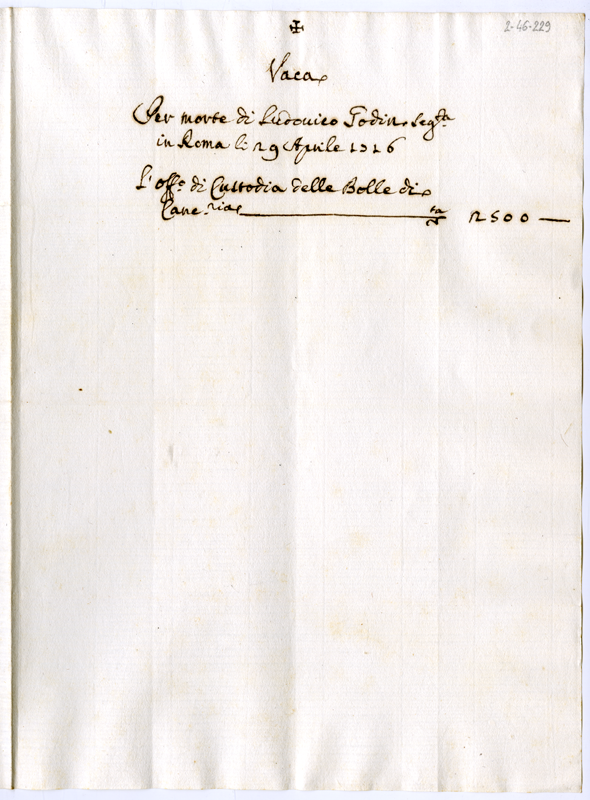 ✠
2-46-229
Vaca
Per morte di Ludovico Godin seg.ta
in Roma li 29 Aprile 1716
L'off.o di Custodia delle Bolle di
Canc.ria 2500